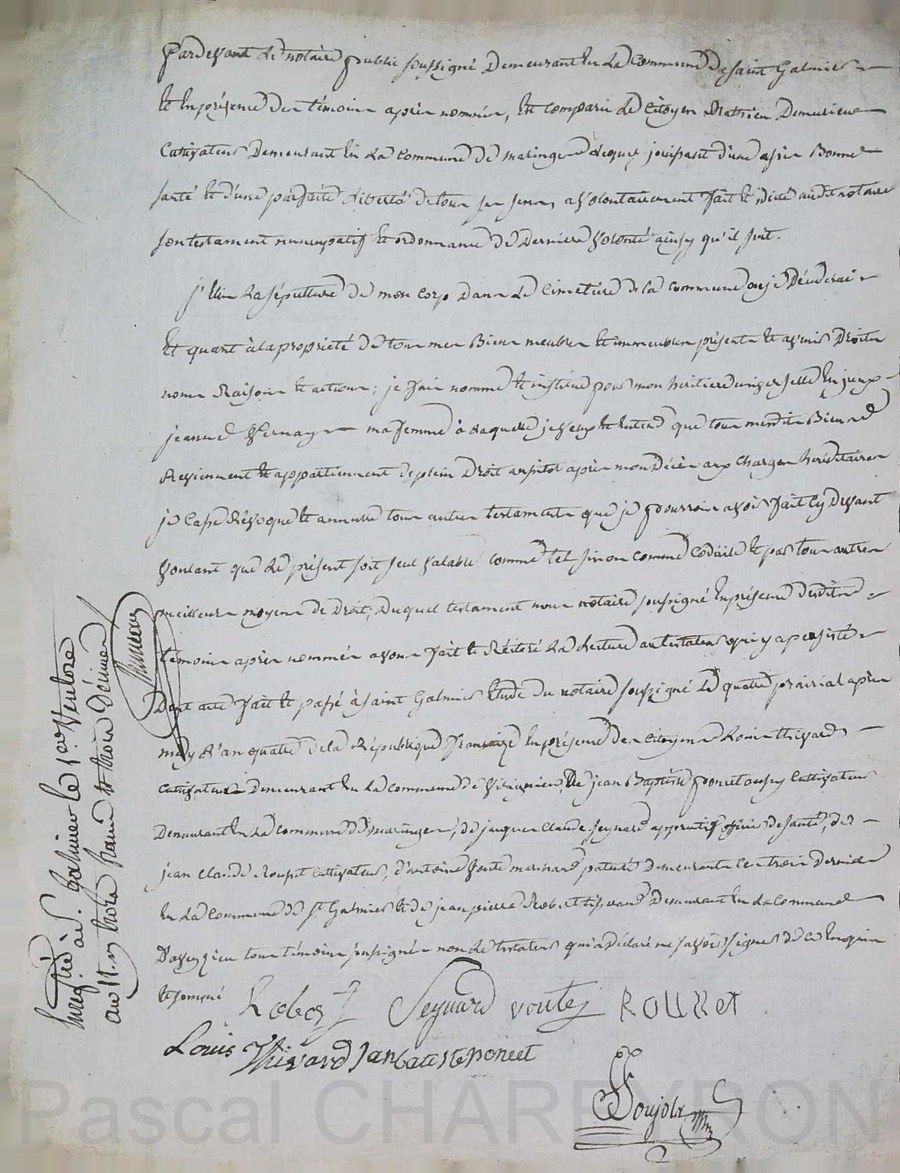 Pardevant le notaire public soussigné Demeurant En La Commune de Saint Galmier
Et En présence des témoins après nommés, Est comparu Le Citoyen Demurieu
Cultivateur Demeurant En La Commune de maringes Lequel jouissant d'une assés Bonne
santé Et d'une parfaite Liberté de tous ses sens, a volontairement fait Et dicté audit notaire
son testament nuncupatif Et ordonnance de Derniere Volonté ainsy qu'il suit.
j'Elis La sépulture de mon Corps Dans Le Cimetiere de la Commune ou je Déciderai
Et quant à la propriété de tous mes Biens meubles Et immeubles présents Et avenir Droits
noms Raisons Et actions; je fais nomme Et institue pour mon héritiere universelle
jeanne Vernay ma femme à Laquelle je veux Et Entend que tous mesdits Biens
Reviennent Et appartiennent de plein Droit aussitot après mon Décès aux Charges héréditaires
je Casse Révoque Et annulle tous autres testaments que je pourrois avoir fait Cy Devant
Voulant que Le présent soit seul Valable comme tel sinon comme Codicile Et par tous autres
meilleurs moyens de Droit, Duquel testament nous notaire soussigné En présence desdits
témoins après nommés avons fait Et Réitéré La Lecture au testateur qui y a persisté
Dont acte fait Et passé à Saint Galmier Etude du notaire soussigné Le quatre prairial après
midy L'an quatre de la République française En présence des Citoyens Louis thivard
Cultivateur Demeurant En La Commune de de jean Baptiste poncet aussy Cultivateur
Demeurant En La Commune De maringes, de jacques Claude seynard officier de santé, de
jean Claude Cultivateur, d'antoine Voute marchand patenté demeurants Ces trois Derniers
En La Commune de St Galmier Et de jean pierre Robert Demeurant En La Commune
tous témoins soussignés non Le testateur qui a Déclaré ne savoir signer de Ce Enquis
Et sommé
Seynard voute Roussset
Louis Thivard Jan batiste poncet
Soujolx
Enregistré à St. Galmier le 1er Ventose
an 11. Rx trois francs Et trois Décimes